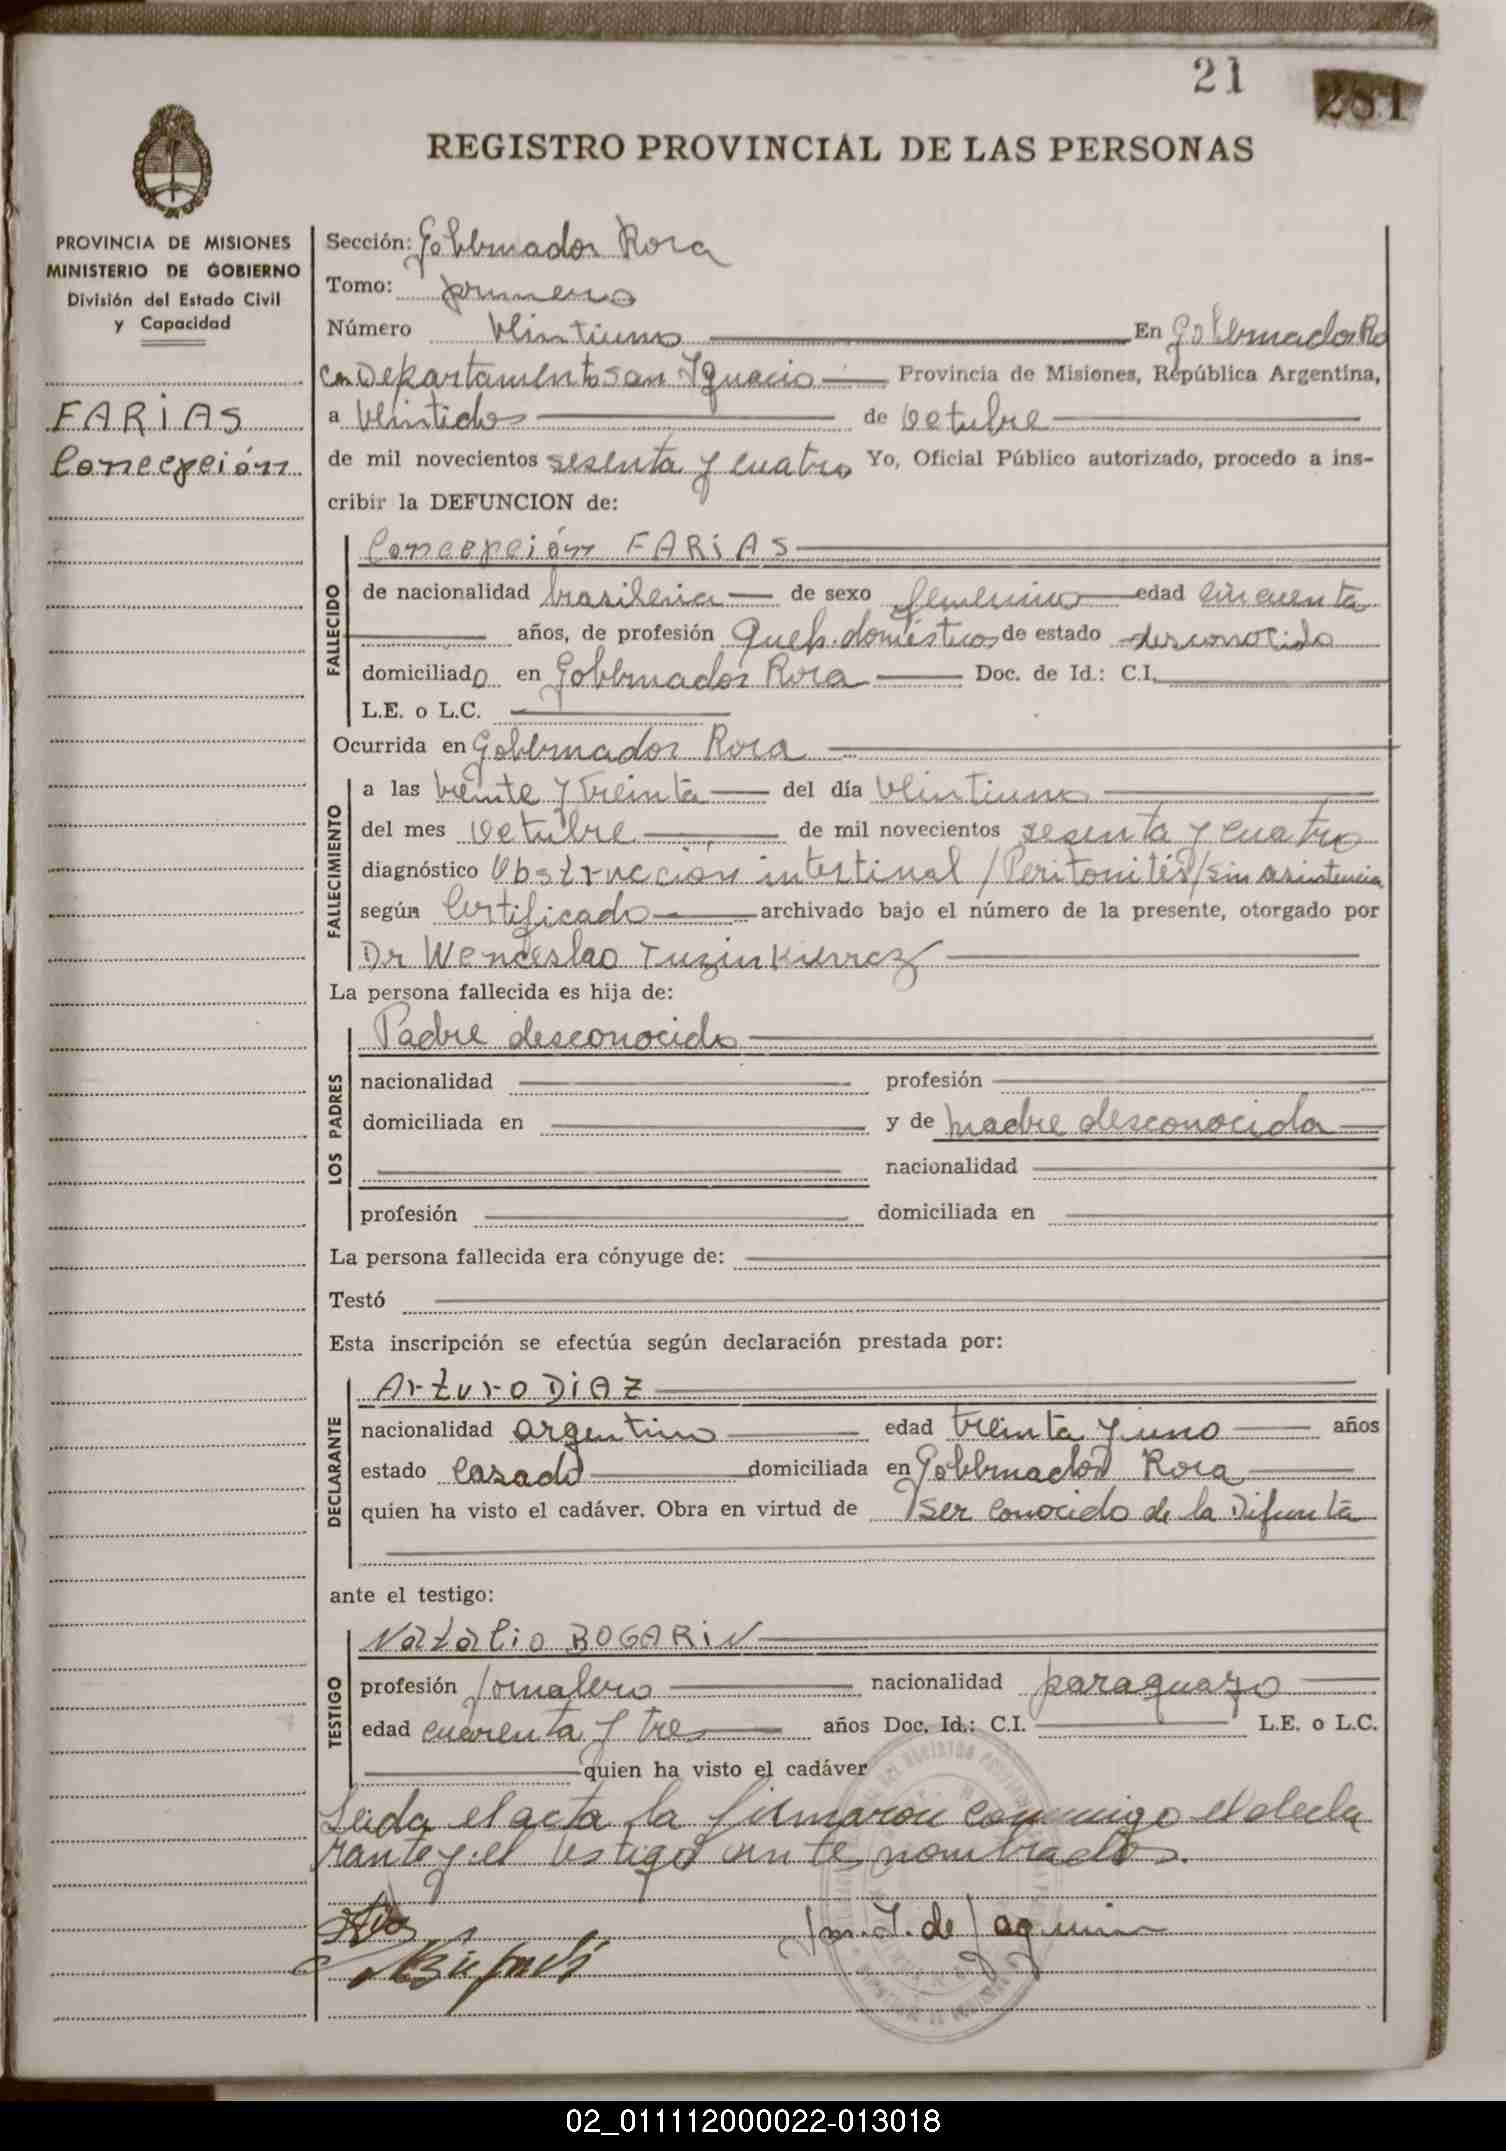 21
281
REGISTRO PROVINCIAL DE LAS PERSONAS
PROVINCIA DE MISIONES
MINISTERIO DE GOBIERNO
División del Estado Civil
y Capacidad
FARiAS
Concepción
Sección: Gobernador Roca
Tomo: primero
Número veintiuno En Gobernador Ro
ca Departamento San Ignacio Provincia de Misiones, República Argentina,
a veintidos de Octubre
de mil novecientos sesenta y cuatro Yo, Oficial Público autorizado, procedo a ins-
cribir la DEFUNCION de:
FALLECIDO
Concepción FARiAS
de nacionalidad brasilena de sexo femenino edad cincuenta
años, de profesión Queh. domésticos de estado desconocido
domiciliado en Gobernador Roca Doc. de Id.: C.I.
L.E. o L.C.
Ocurrida en Gobernador Roca
FALLECIMIENTO
a las veinte y treinta del día veintiuno
del mes Octubre de mil novecientos sesenta y cuatro
diagnóstico Obstrucción intestinal / Peritonitis / sin asistencia
según Certificado archivado bajo el número de la presente, otorgado por
Dr Wenceslao
La persona fallecida es hija de:
LOS PADRES
Padre desconocido
nacionalidad profesión
domiciliada en y de madre desconocida
nacionalidad
profesión domiciliada en
La persona fallecida era cónyuge de:
Testó
Esta inscripción se efectúa según declaración prestada por:
DECLARANTE
Arturo DiAZ
nacionalidad argentino edad treinta y uno años
estado casado domiciliada en Gobernador Roca
quien ha visto el cadáver. Obra en virtud de ser conocido de la Difunta
ante el testigo:
TESTIGO
Natalio BOGARiN
profesión Jornalero nacionalidad paraguayo
edad cuarenta y tres años Doc. Id.: C.I. L.E. o L.C.
quien ha visto el cadáver
Leida el acta la firmaron conmigo el decla
rante y el testigo ante nombrados.